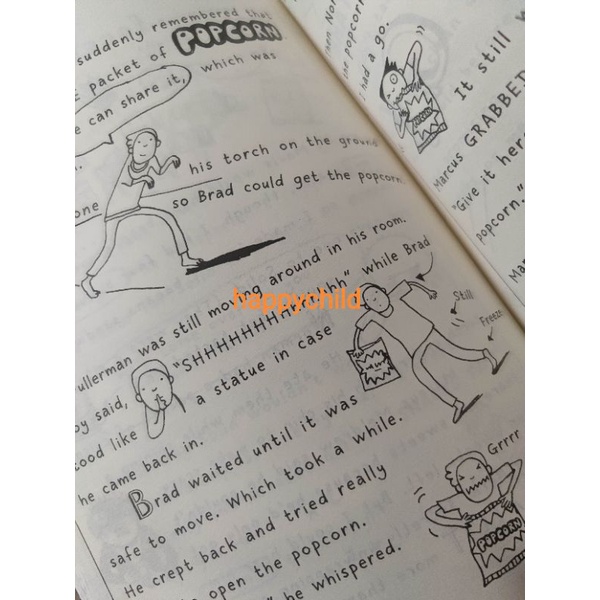 suddenly remembered that
packet of POPCORN
can share it, which was
his torch on the ground
so Brad could get the popcorn.
ullerman was still moving around in his room.
said, "SHHHHHHHHHHHHHH" while Brad
like a statue in case
he came back in.
Brad waited until it was
safe to move. Which took a while.
He crept back and tried really
open the popcorn.
he whispered.
Still
Freeze
Grrrr
POPCORN
the popcorn
had a go.
POPCORN
It still
Marcus GRABBED
"Give it
popcorn."
happychild